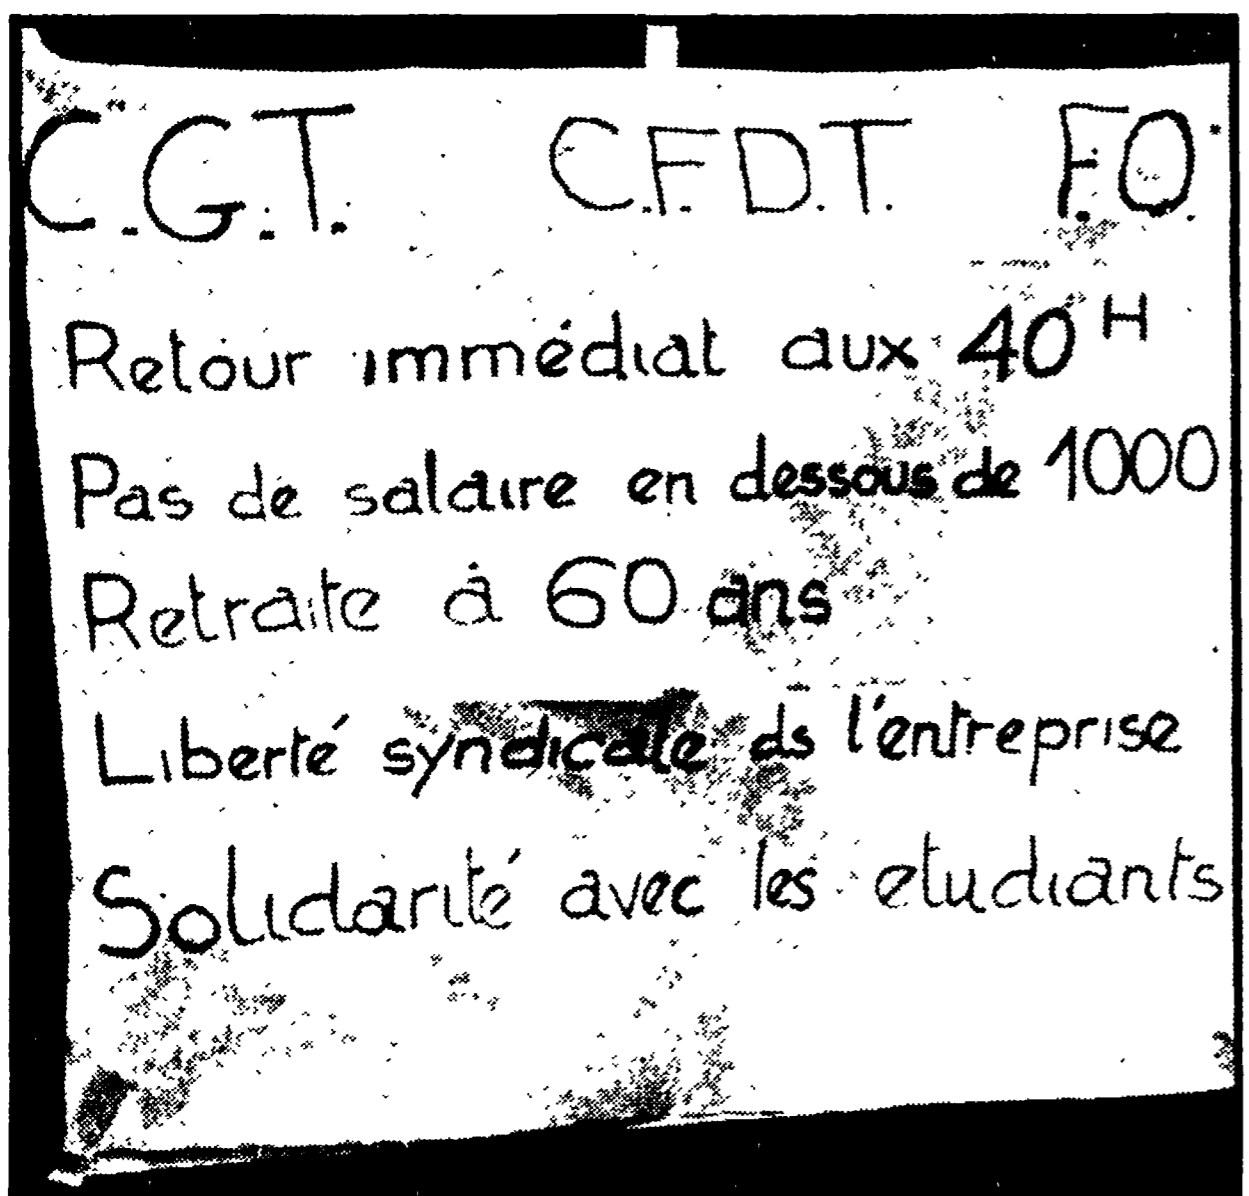 C.G.T. C.F.D.T. F.O.
Retour immédiat aux 40H
Pas de salaire en dessous de 1000
Retraite à 60 ans
Liberté syndicale ds l'entreprise
Solidarité avec les etudiants